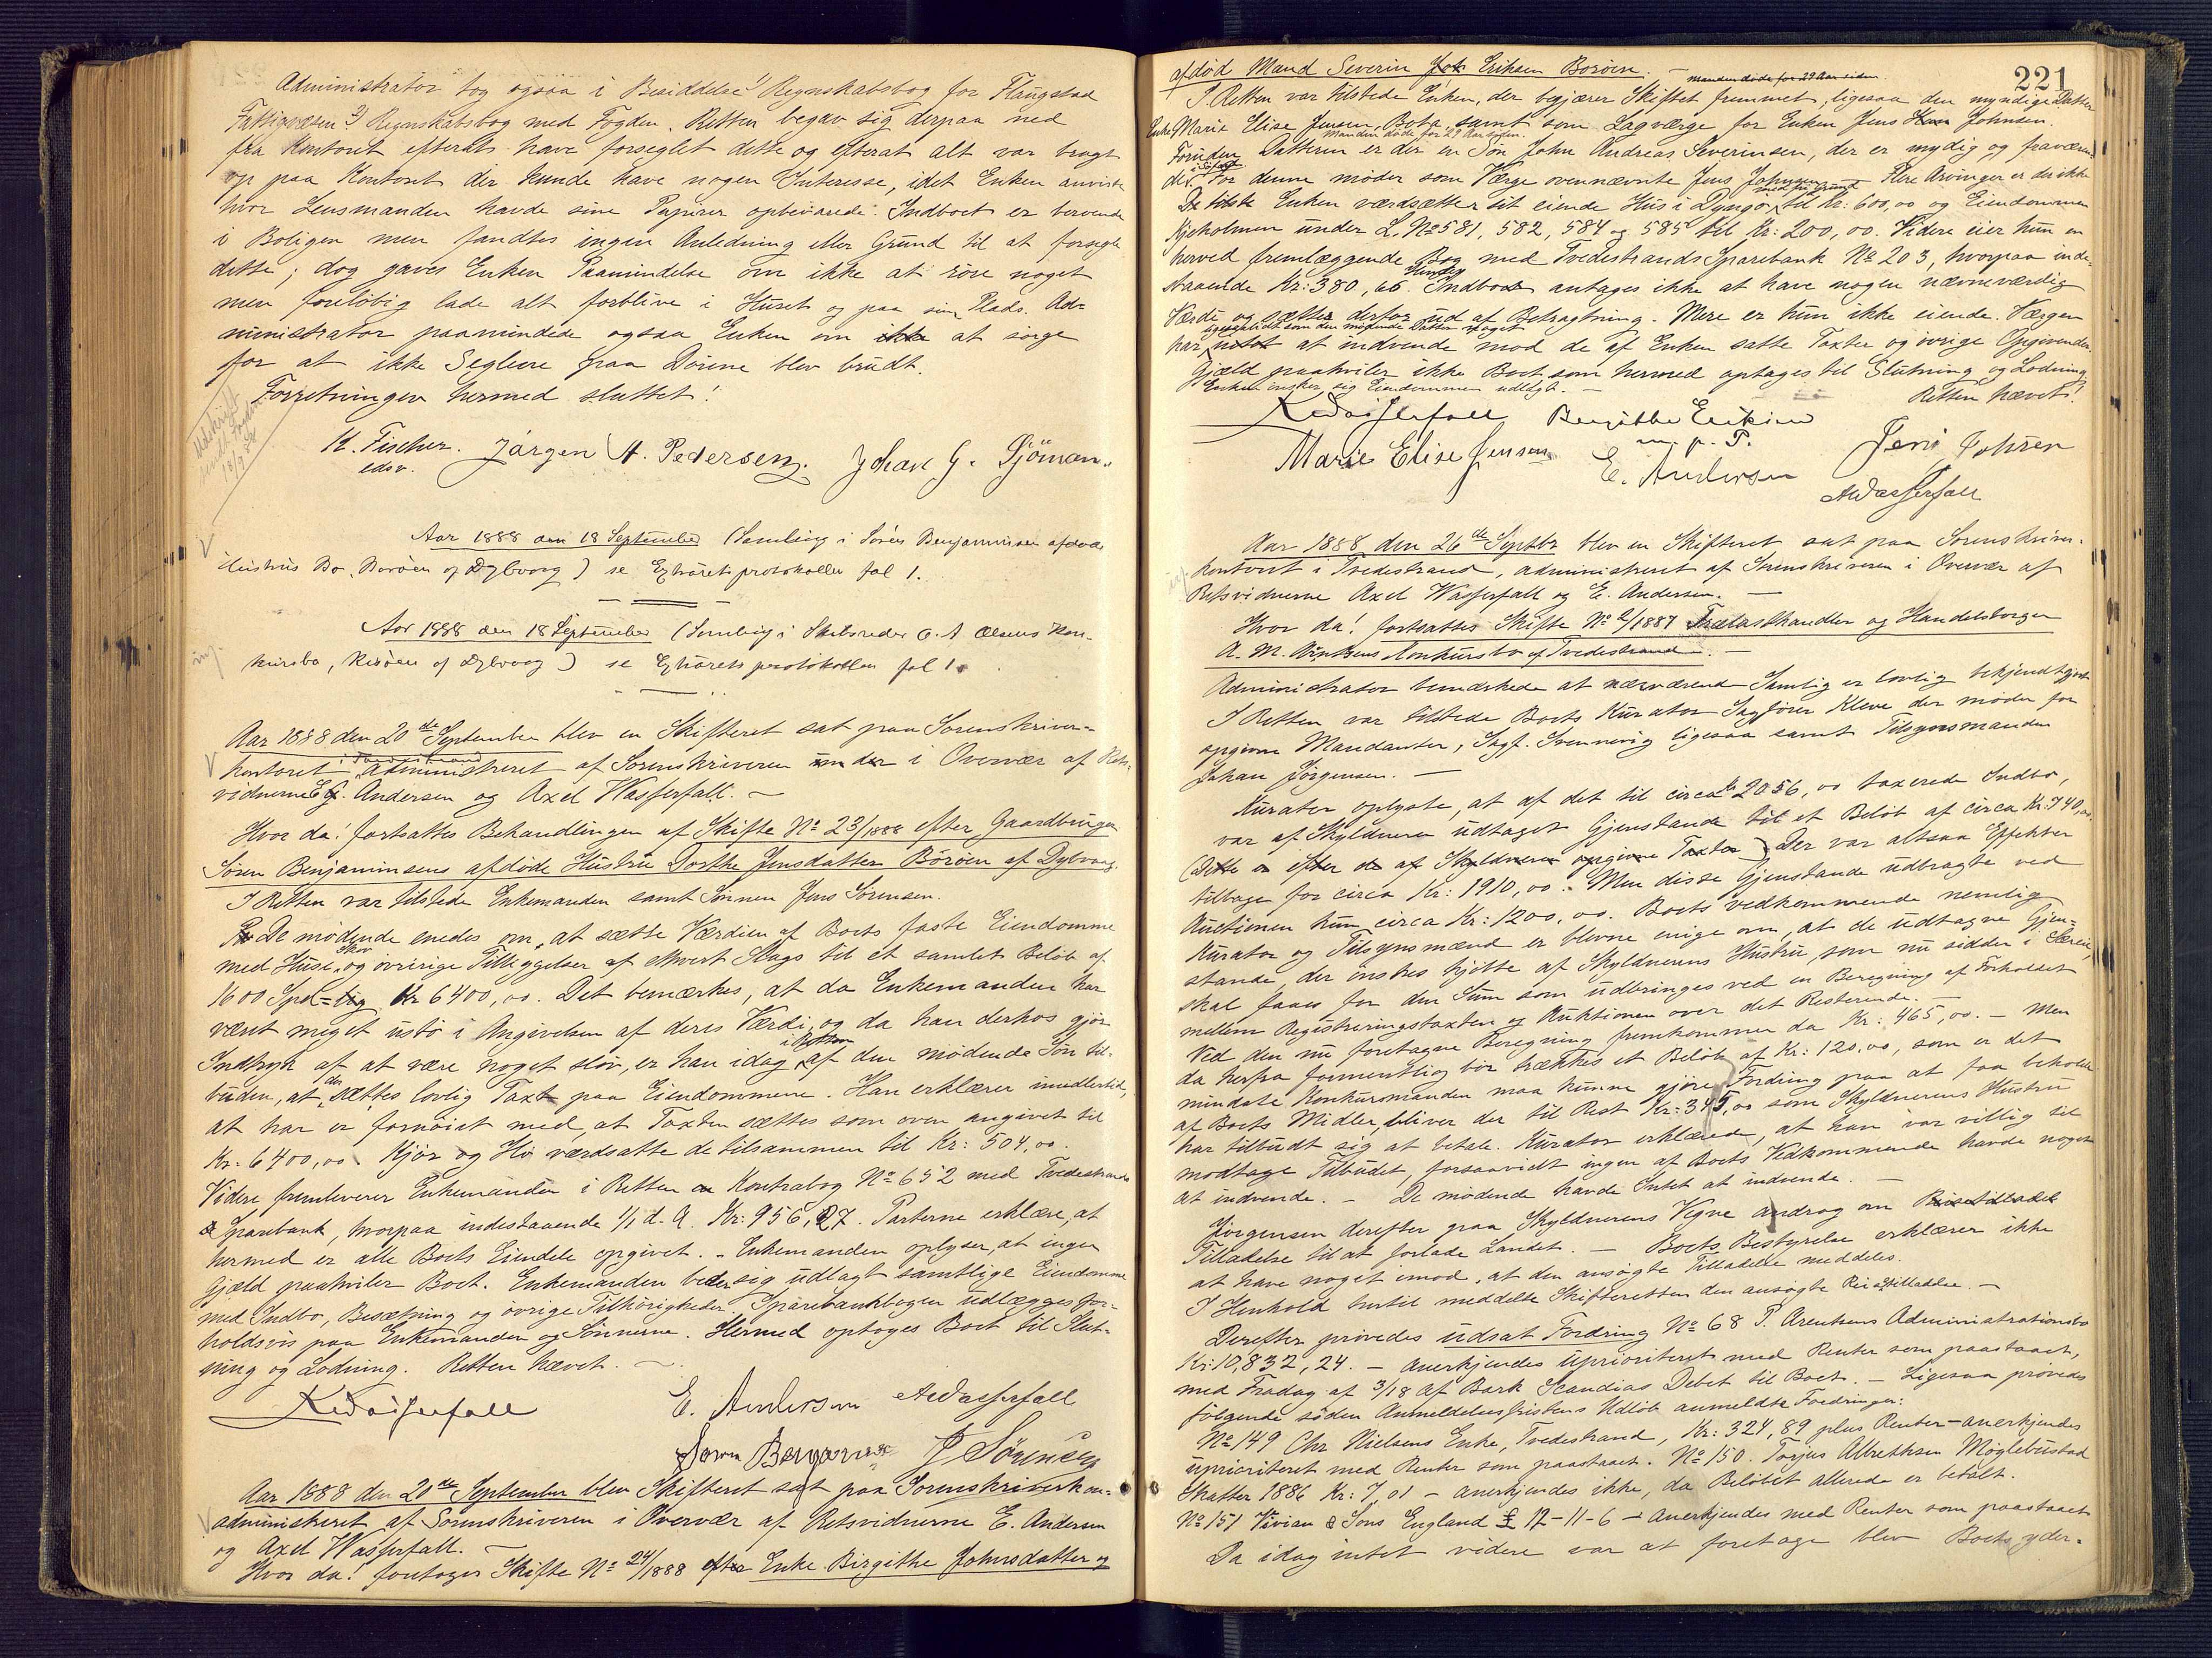 Administrator tog ogsaa i Besiddelse 1) Regnskabsbog for Flaugstad
Fattigvæsen 2) Regnskabsbog med Fogden. Retten begav sig derpaa ned
fra Kontoret efterat have forseglet dette og efterat alt var bragt
op paa Kontoret der kunde have nogen Interesse, idet Enken anviste
hvor Lensmanden havde sine Papirer opbevarede. Indboet er beroende
i Boligen men fandtes ingen Anledning eller Grund til at forsegle
dette; dog gaves Enken Paamindelse om ikke at röre noget
men foreløbig lade alt forblive i Huset og paa sin Plads. Ad-
ministrator paamindede ogsaa Enken om ikke at sørge
for at ikke Seglene paa Dørene blev brudt.
Forretningen hermed sluttet!
K. Fischer. Jörgen A. Pedersen. Johan G. Sjöman.
edsv.
Aar 1888 den 18 September (Samling i Sören Benjaminsen afdøde
Hustrus Bo, Borøen af Dybvaag) se Extraretsprotokollen fol 1.
Aar 1888 den 18 September (Samling i Skibsreder O. A Olsens Kon-
kursbo, Risøen af Dybvaag) se Extraretsprotokollen fol 1.
Aar 1888 den 20de September blev en Skifteret sat paa Sorenskriver-
kontoret i Tvedestrand administreret af Sorenskriveren under i Overvær af Rets-
vidnerne E. Andersen og Axel Wasserfall. —
Hvor da! fortsattes Behandlingen af Skifte No 23/1888 efter Gaardbruger
Sören Benjaminsens afdøde Hustru Dorthe Jensdatter Börøen af Dybvaag.
I Retten var tilstede Enkemanden samt Sønnen Jens Sørensen.
De mødende enedes om, at sætte Værdien af Boets faste Eiendomme
med Huse, Skov og øvrige Tilliggelser af ethvert Slags til et samlet Beløb af
1600 Spd = Kr 6400,00. Det bemærkes, at da Enkemanden har
været meget ustø i Angivelsen af deres Værdi, og da han derhos gjør
Indtryk af at være noget sløv, er han idag i Retten af den mødende Søn til-
buden, at der sættes lovlig Taxt paa Eiendommene. Han erklærer imidlertid,
at han er fornøiet med, at Taxten sættes som oven angivet til
Kr: 6400,00. Kjør og Hø værdsatte de tilsammen til Kr: 504,00.
Videre fremleverer Enkemanden i Retten en Kontrabog No 652 med Tvedestrands
Sparebank, hvorpaa indestaaende 1/1 d. A. Kr: 956,27. Parterne erklære, at
hermed er alle Boets Eiendele opgivet. - Enkemanden oplyser, at ingen
Gjæld paahviler Boet. Enkemanden beder sig udlagt samtlige Eiendomme
med Indbo, Besætning og øvrige Tilhørigheder. Sparebankbogen udlægges for-
holdsvis paa Enkemanden og Sønnerne. Hermed optoges Boet til Slut-
ning og Lodning. Retten hævet. —
KWasserfall E. Andersen AWasserfall
Søren Benjamin J Sörensen
Aar 1888 den 20de September blev Skifteret sat paa Sorenskriverkon-
administreret af Sorenskriveren i Overvær af Retsvidnerne E. Andersen
og Axel Wasserfall. —
Hvor da! foretages Skifte No 24/1888 efter Enke Birgithe Johnsdatter og
221
afdød Mand Severin Joh Eriksen Borøen. — manden døde for 29 Aar siden.
I Retten var tilstede Enken, der begjærer Skiftet fremmet, ligesaa den myndige Datter
Enke Marie Elise Jensen, Bota samt som Lagværge for Enken Jens Johnsen.
manden døde for 29 Aar siden.
Foruden Datteren er der en Søn John Andreas Severinsen, der er mydig og fraværen-
de. For denne møder som Værge ovennævnte Jens Johnsen. Flere Arvinger er der ikke
tilstede Enken værdsætter sit eiende Hus i Dyngø med sin Grund til Kr: 600,00 og Eiendommen
Kjeholmen under L. No 581, 582, 584 og 585 til Kr: 200,00. Videre eier hun en
herved fremlæggende Bog med Tvedestrands Sparebank No 203, hvorpaa inde-
staaende Kr: 380,66. Hendes Indbo antages ikke at have nogen nævneværdig
Værdi og sættes derfor ud af Betragtning. Mere er hun ikke eiende. Værgen
har ligesaalidt som den mødende Datter noget intet at indvende mod de af Enken satte Taxter og øvrige Opgivender.
Gjæld paahviler ikke Boet som hermed optages til Slutning og Lodning.
Enken ønsker sig Eiendommen udlagt. — Retten hævet!
KWasserfall Birgithe Eriksen
m. p. P.
Marie Elise Jensen E. Andersen Jens Johnsen
AWasserfall
Aar 1888 den 26de Septbr blev en Skifteret sat paa Sorenskriver-
kontoret i Tvedestrand, administreret af Sorenskriveren i Overvær af
Retsvidnerne Axel Wasserfall og E. Andersen. —
Hvor da! fortsattes Skifte No 2/1887 Trælasthandler og Handelsborger
A. M. Arntzens Konkursbo af Tvedestrand. —
Administrator bemærkede at nærværende Samling er lovlig bekjendtgjort
I Retten var tilstede Boets Kurator Sagfører Kleve der møder for
opgivne Mandanter, Sagf. Svenneviq ligesaa samt Tilsynsmanden
Johan Jörgensen. —
Kurator oplyste, at af det til circa Kr 2056,00 taxerede Indbo,
var af Skyldneren udtaget Gjenstande til et Beløb af circa Kr: 740,00.
(Dette er efter de af Skyldneren opgivne Taxter) Der var altsaa Effekter
tilbage for circa Kr: 1910,00. Men disse Gjenstande udbragte ved
Auctionen kun circa Kr: 1200,00. Boets vedkommende nemlig
Kurator og Tilsynsmænd er blevne enige om, at de udtagne Gjen-
stande, der ønskes kjøbte af Skyldnerens Hustru, som nu sidder i Særeie,
skal faaes for den Sum som udbringes ved en Beregning af Forholdet
mellem Registreringstaxten og Auktionen over det Resterende. —
Ved den nu foretagne Beregning fremkommer da Kr: 465,00. — Men
da herfra formentlig bør trækkes et Beløb af Kr: 120,00, som er det
mindste Konkursmanden maa kunne gjøre Fordring paa at faa beholde
af Boets Midler, bliver der til Rest Kr: 345,00 som Skyldnerens Hustru
har tilbudt sig at betale. Kurator erklærede, at han var villig til
modtage Tilbudet, forsaavidt ingen af Boets Vedkommende havde noget
at indvende. — De mødende havde Intet at indvende. —
Jörgensen derefter paa Skyldnerens Vegne androg om
Tilladelse til at forlade Landet. — Boets Bestyrelse erklærer ikke
at have noget imod, at den ansøgte Tilladelse meddeles.
I Henhold hertil meddelte Skifteretten den ansøgte Reisetilladelse. —
Derefter prøvedes udsat Fordring No 68 P. Arentzens Administrationsbo
Kr: 10,832,24. — Anerkjendes uprioriteret med Renter som paastaaet,
med Fradrag af 3/18 af Bark Scandias Debet til Boet. — Ligesaa prøvedes
følgende siden Anmeldelsesfristens Udløb anmeldte Fordringer:
No 149 Chr Nielsens Enke, Tvedestrand, Kr: 324,89 plus Renter — anerkjendes
uprioriteret med Renter som paastaaet. No 150. Torjus Albretksen Møglebustad
Skatter 1886 Kr: 7,01 — anerkjendes ikke, da Beløbet allerede er betalt.
No 151 Vivian & Sons England £ 12-11-6 — Anerkjendes med Renter som paastaaet
Da idag intet videre var at foretage blev Boets yder-